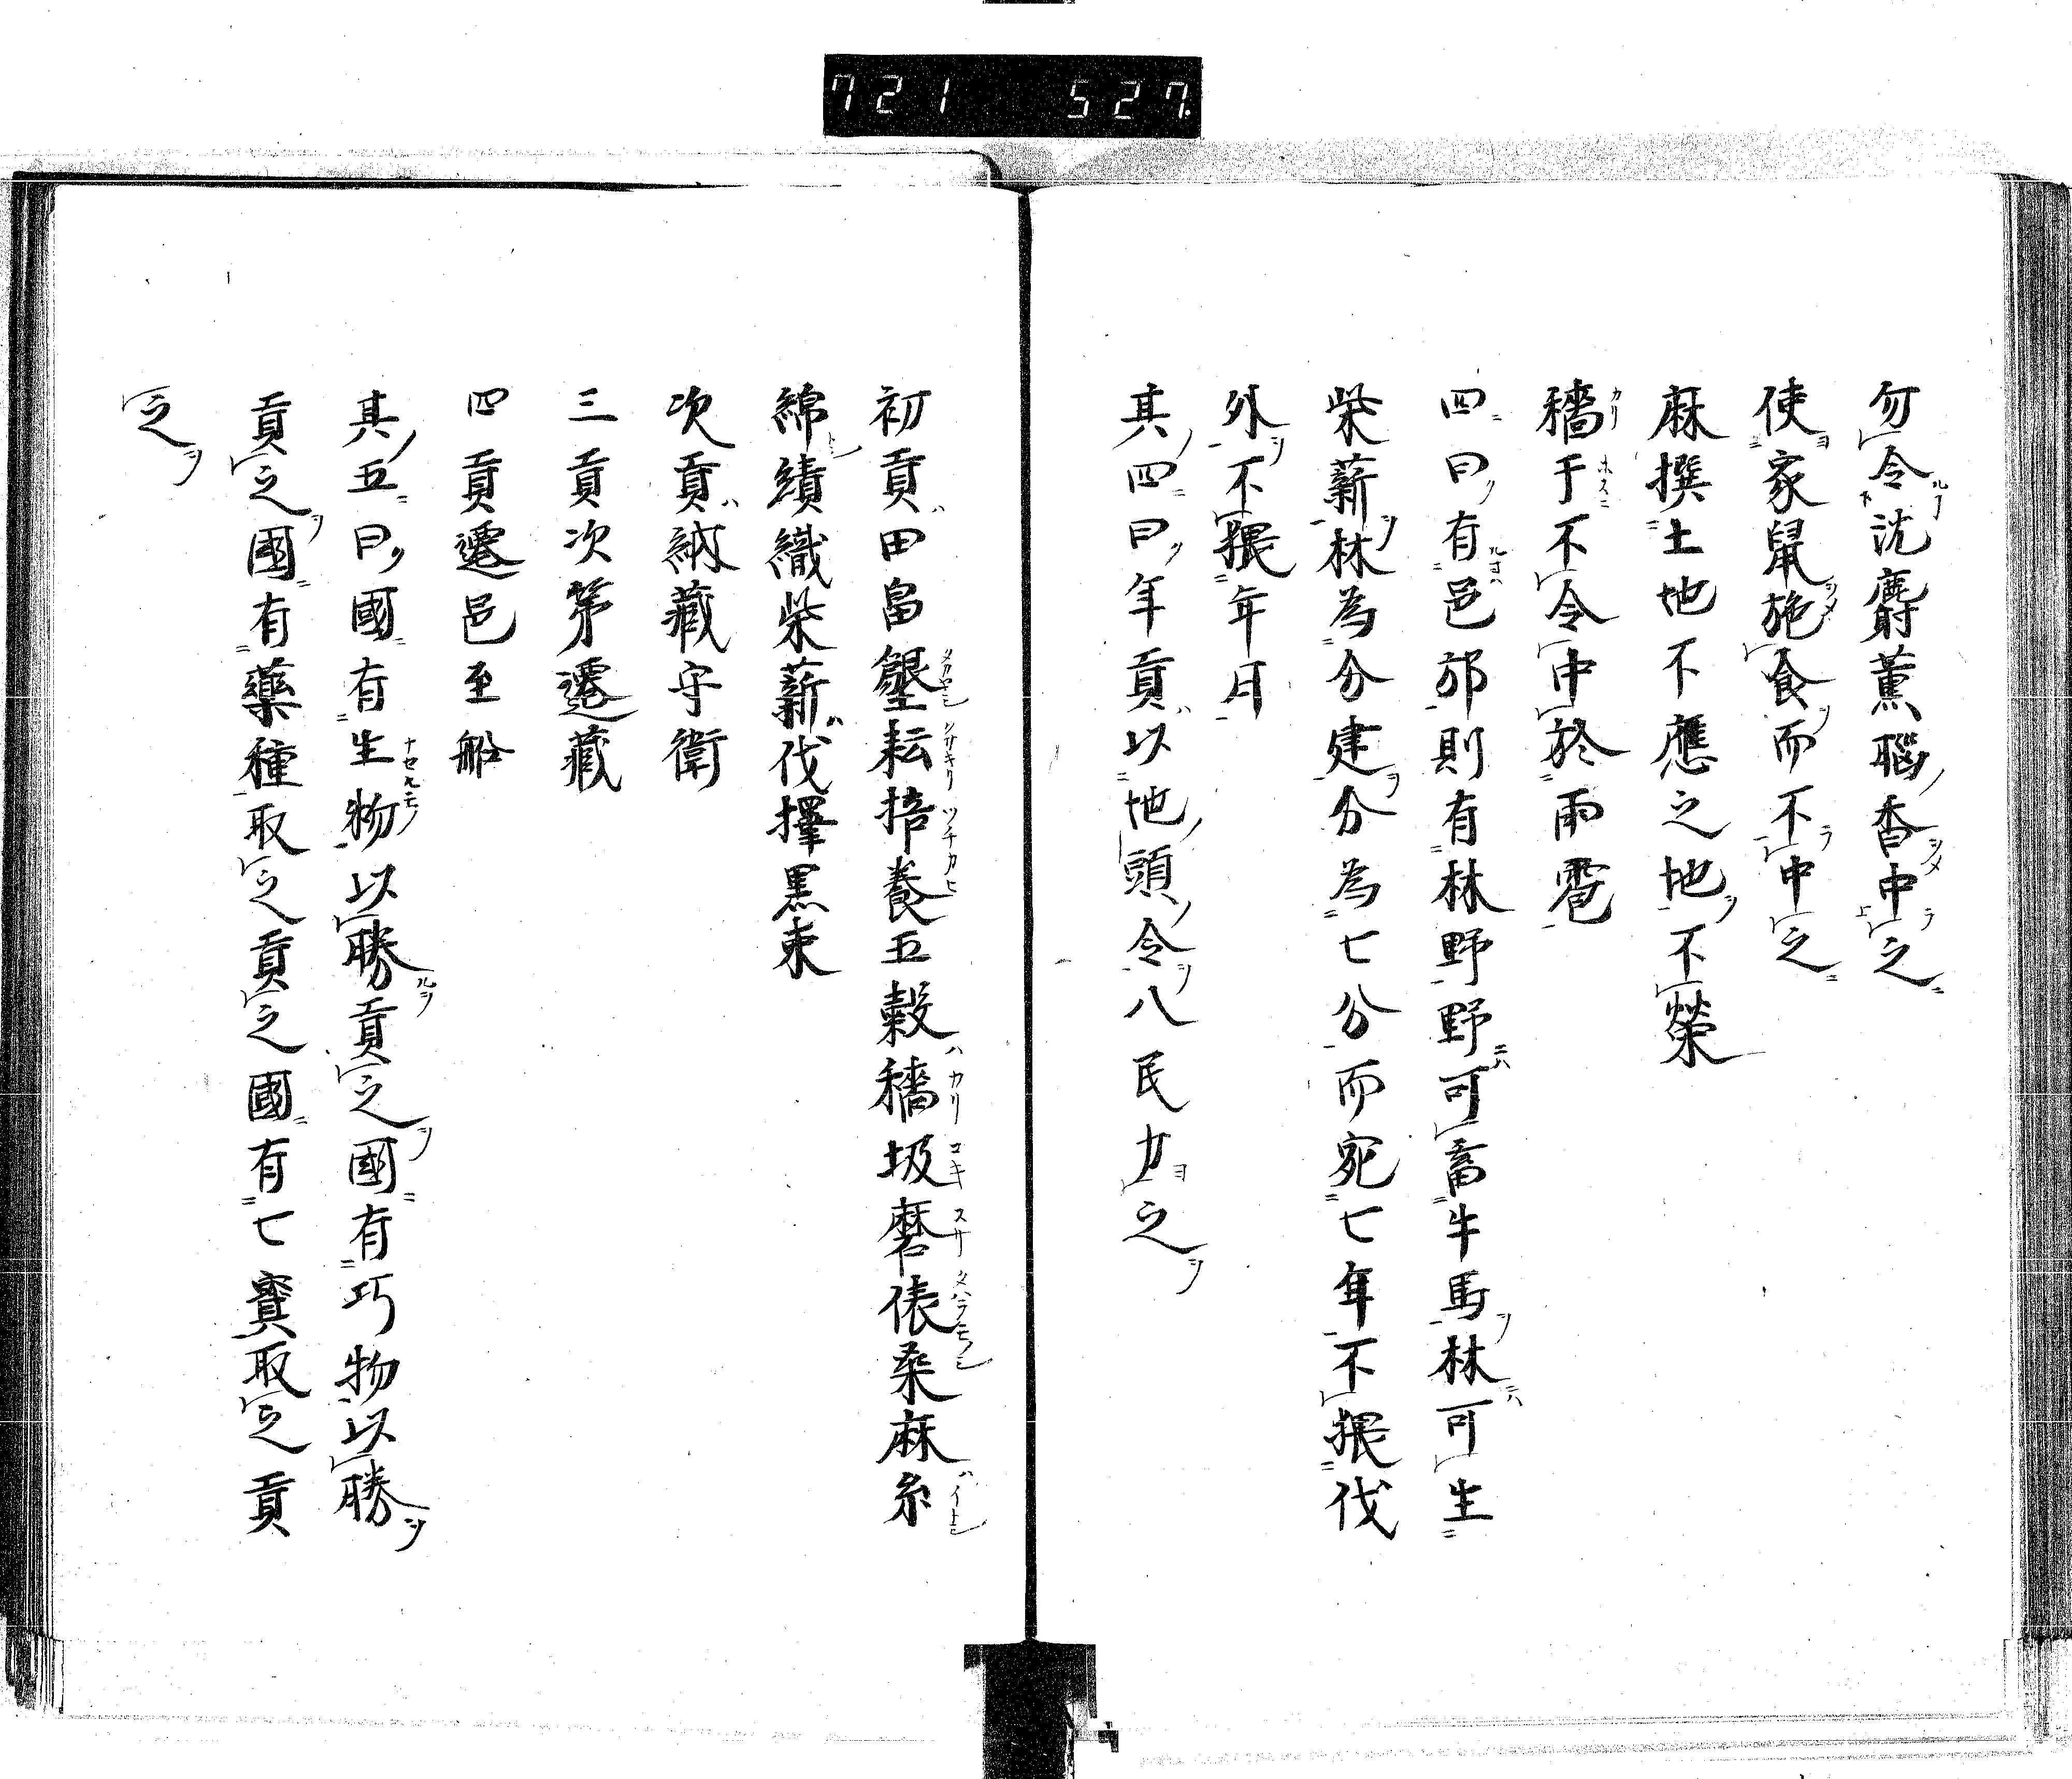 721 527
勿令沈麝薫腦香中之
使家鼠施食而不中之
麻撰土地不應之地不榮
穡于不令中於雨雹
四曰有邑邡則有林野野可畜牛馬林可生
柴薪林為分建分為七分而宛七年不猥伐
外不猥年月
其四曰年貢以地頭令八民力之
初貢田畠墾耘掊養五穀穡圾磨俵桑麻糸
綿績織柴薪伐擇黒束
次貢納藏守衛
三貢次第遷藏
四貢遷邑至船
其五曰國有生物以勝貢之國有巧物以勝
貢之國有藥種取之貢之國有七寶取之貢
之